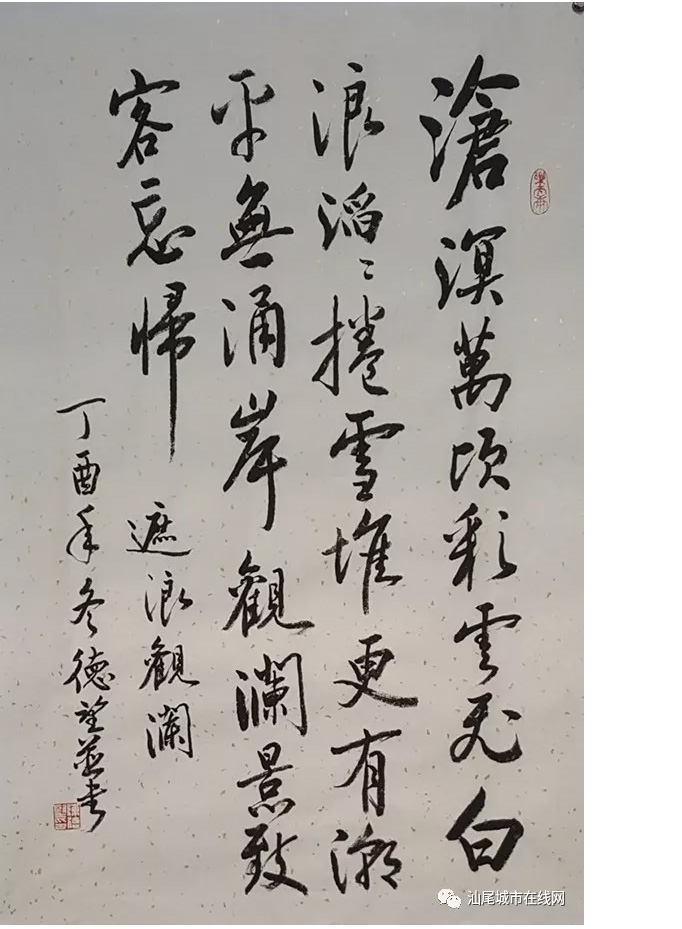 滄溟萬頃彩雲飛白
浪滔〻捲雪堆更有潮
平無涌岸觀瀾景致
客忘歸
遮浪觀瀾
丁酉年冬德望並書
汕尾城市在线网